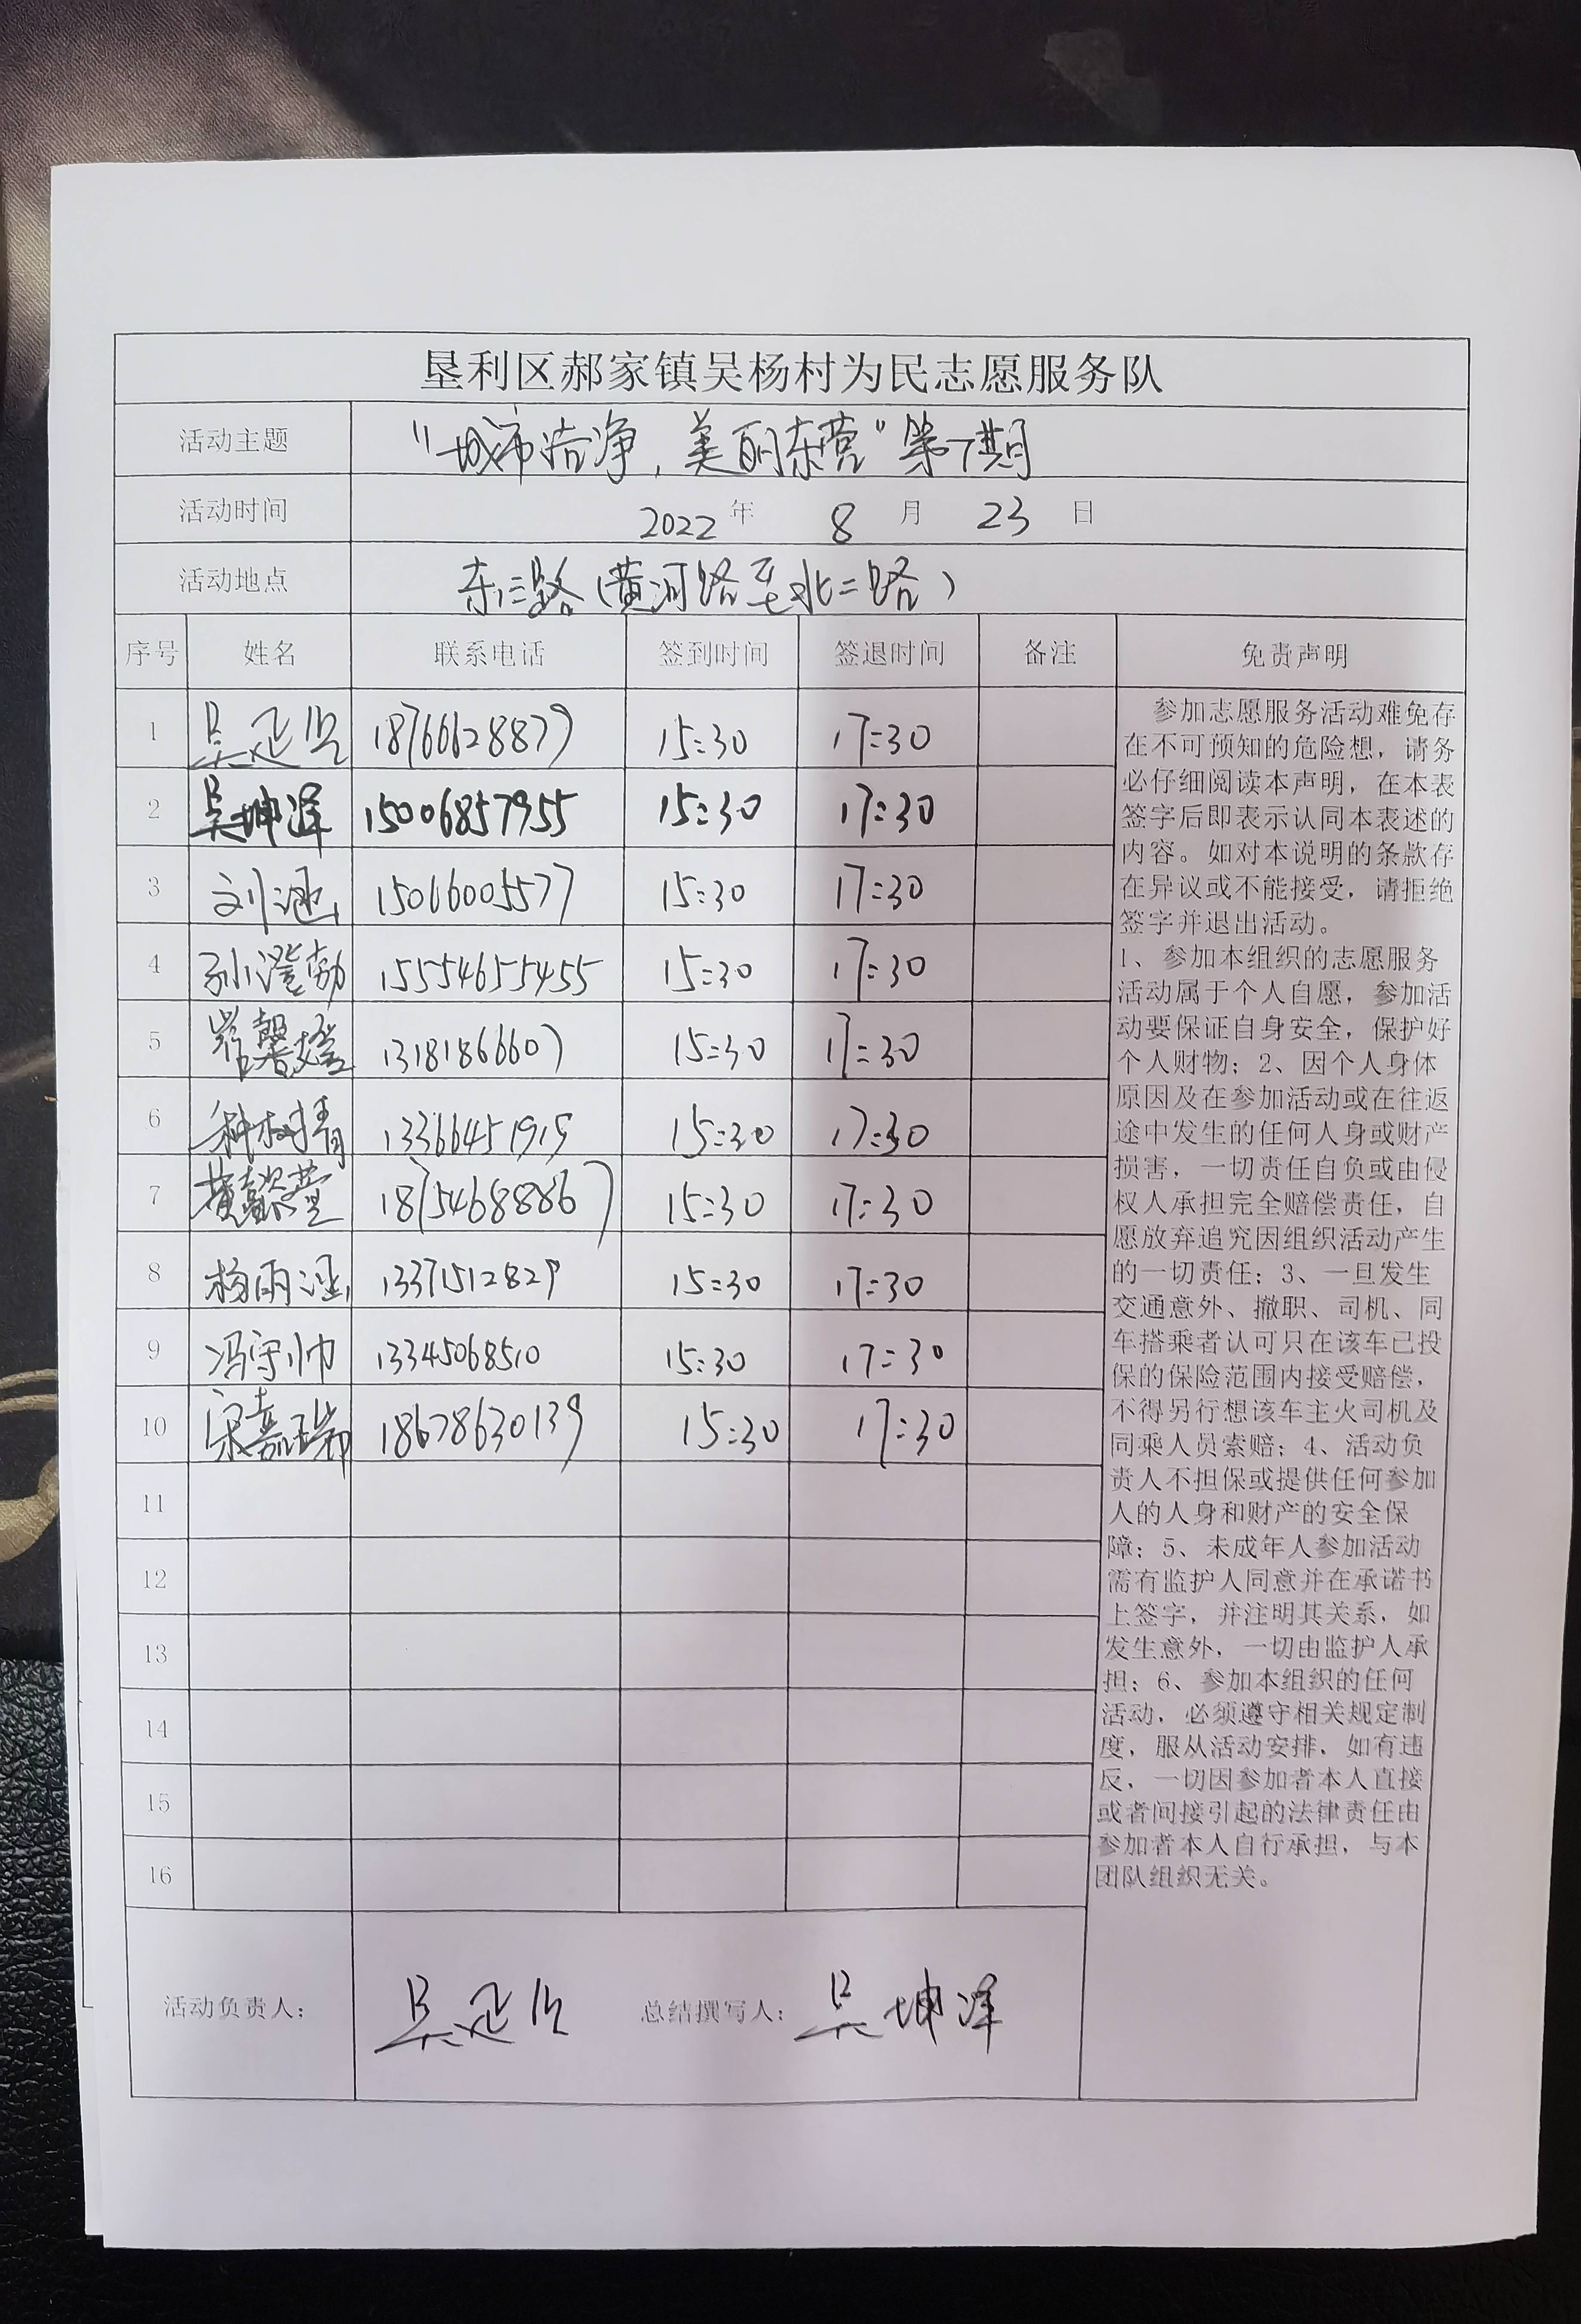 垦利区郝家镇吴杨村为民志愿服务队
活动主题 “城市洁净，美丽东营”第7期
活动时间 2022 年 8 月 23 日
活动地点 东三路（黄河路至北二路）
序号 姓名 联系电话 签到时间 签退时间 备注 免责声明
1 吴延 18766628879 15:30 17:30
2 吴坤泽 15006857955 15:30 17:30
3 刘涵 15066005577 15:30 17:30
4 孙澄勃 15554655455 15:30 17:30
5 馨 13181866607 15:30 17:30
6 13366451919 15:30 17:30
7 黄懿萱 18754688867 15:30 17:30
8 杨雨涵 13371512829 15:30 17:30
9 冯守帅 13345068510 15:30 17:30
10 宋嘉瑞 18678630139 15:30 17:30
11
12
13
14
15
16
参加志愿服务活动难免存
在不可预知的危险想，请务
必仔细阅读本声明，在本表
签字后即表示认同本表述的
内容。如对本说明的条款存
在异议或不能接受，请拒绝
签字并退出活动。
1、参加本组织的志愿服务
活动属于个人自愿，参加活
动要保证自身安全，保护好
个人财物；2、因个人身体
原因及在参加活动或在往返
途中发生的任何人身或财产
损害，一切责任自负或由侵
权人承担完全赔偿责任，自
愿放弃追究因组织活动产生
的一切责任；3、一旦发生
交通意外、撤职、司机、同
车搭乘者认可只在该车已投
保的保险范围内接受赔偿，
不得另行想该车主火司机及
同乘人员索赔；4、活动负
责人不担保或提供任何参加
人的人身和财产的安全保
障；5、未成年人参加活动
需有监护人同意并在承诺书
上签字，并注明其关系，如
发生意外，一切由监护人承
担；6、参加本组织的任何
活动，必须遵守相关规定制
度，服从活动安排，如有违
反，一切因参加者本人直接
或者间接引起的法律责任由
参加者本人自行承担，与本
团队组织无关。
活动负责人： 吴延 总结撰写人： 吴坤泽